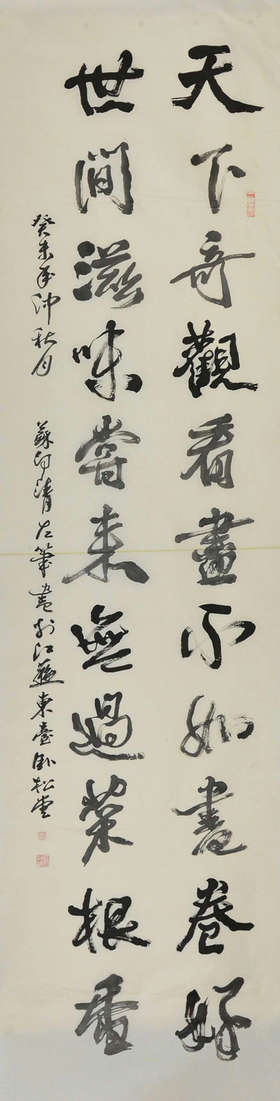 天下奇觀看盡不如書卷好
世間滋味嘗來無過菜根香
癸未年仲秋月
蘇 清左筆書於江蘇東臺卧松堂